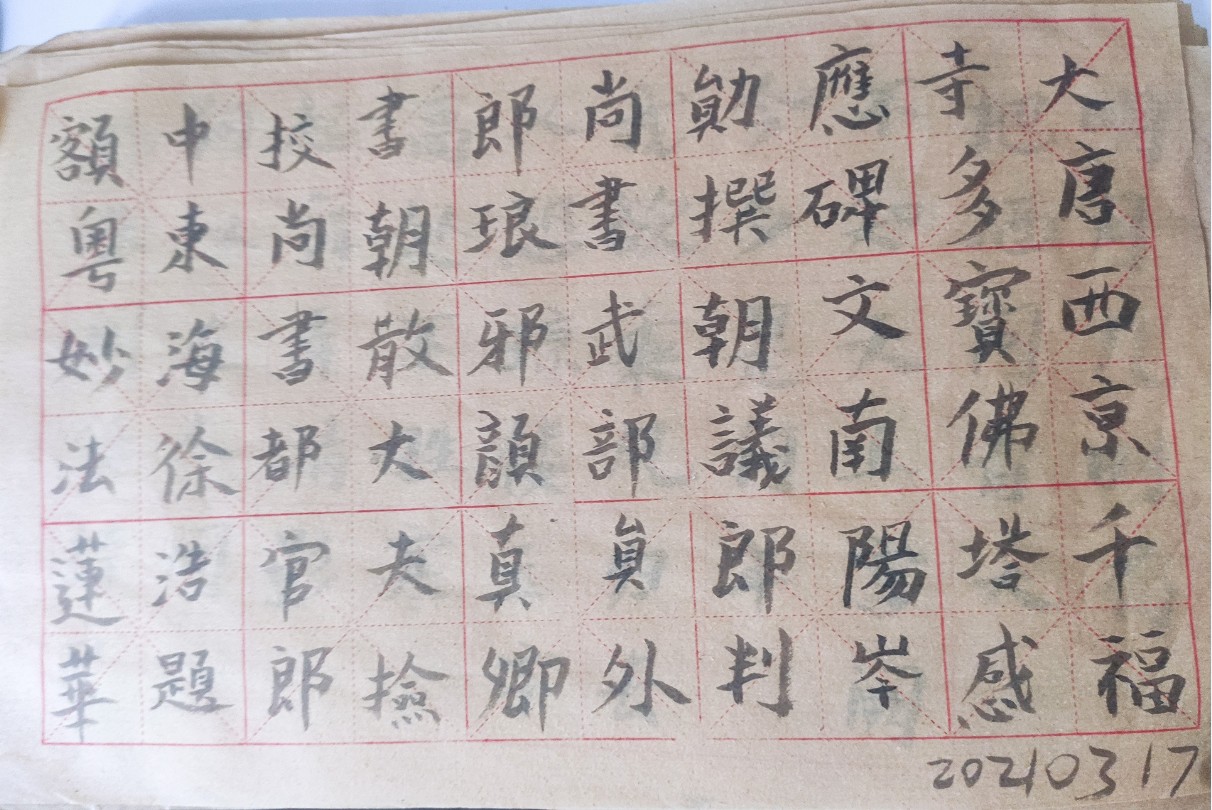 大唐西京千福
寺多寳佛塔感
應碑文南陽岑
勛撰朝議郎判
尚書武部員外
郎琅邪顏真卿
書朝散大夫撿
挍尚書都官郎
中東海徐浩題
額粵妙法蓮華
20210317